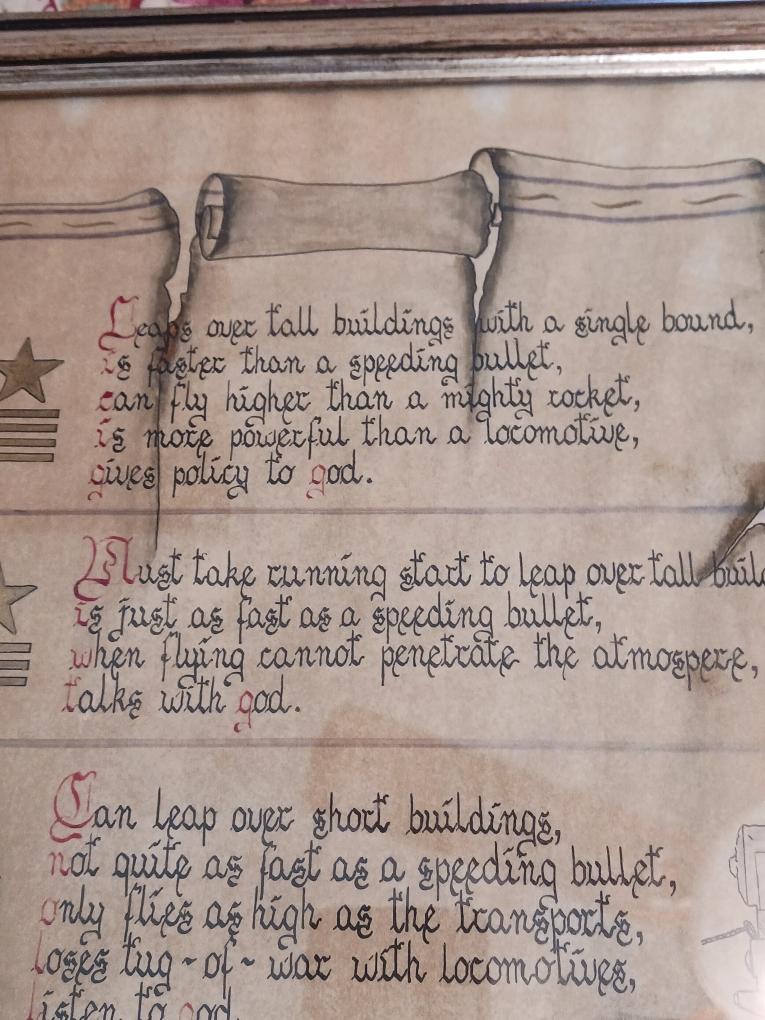 Leaps over tall buildings with a single bound,
is faster than a speeding bullet,
can fly higher than a mighty rocket,
is more powerful than a locomotive,
gives policy to god.
Must take running start to leap over tall build
is just as fast as a speeding bullet,
when flying cannot penetrate the atmospere,
talks with god.
Can leap over short buildings,
not quite as fast as a speeding bullet,
only flies as high as the transports,
loses tug-of-war with locomotives,
listen to god.